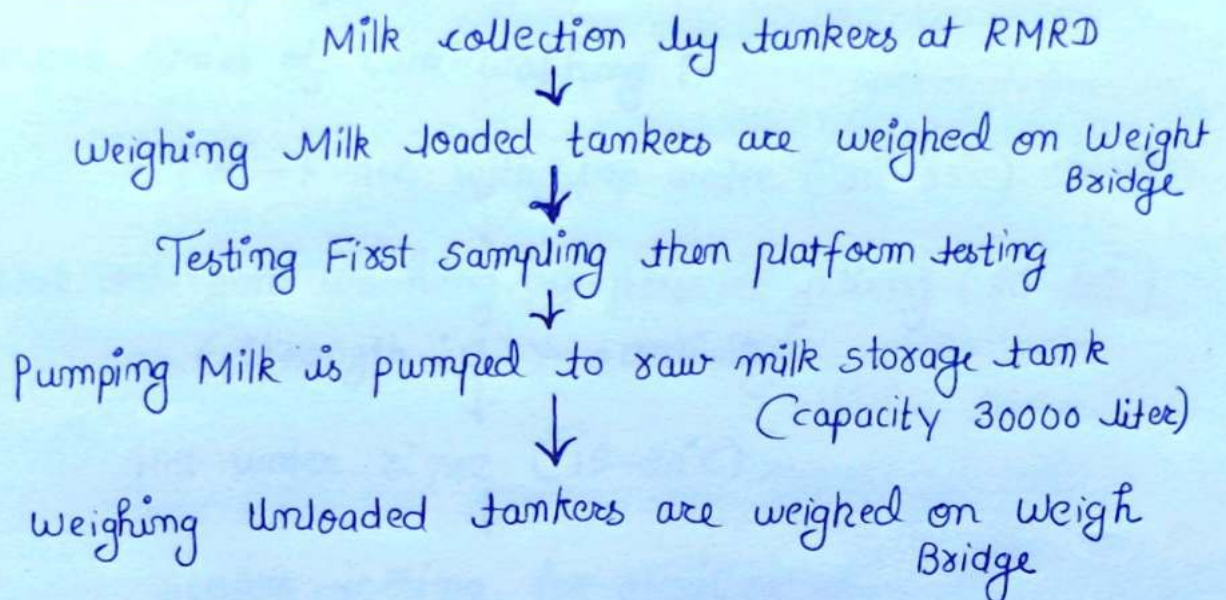 Milk collection by tankers at RMRD
↓
Weighing Milk loaded tankers are weighed on Weight
Bridge
↓
Testing First Sampling then platform testing
↓
Pumping Milk is pumped to raw milk storage tank
(capacity 30000 liter)
↓
Weighing Unloaded tankers are weighed on Weigh
Bridge